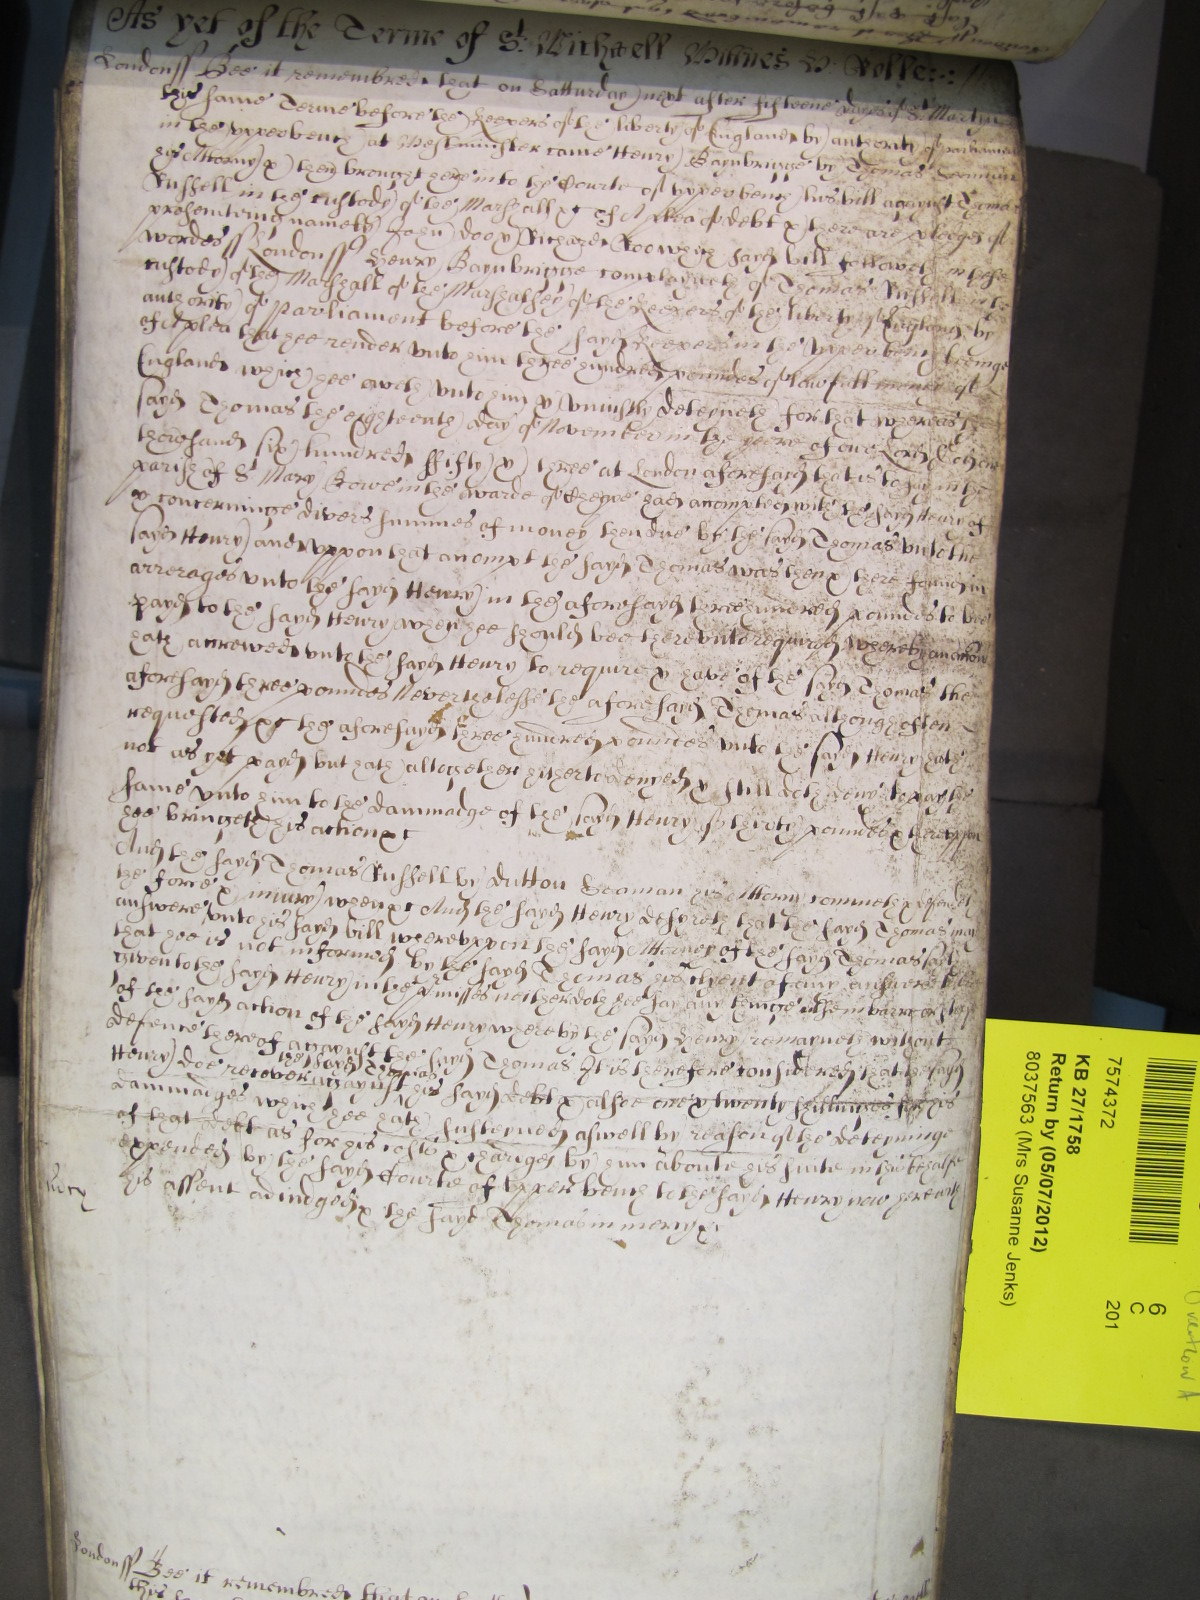 As yet of the Terme of St: Michaell Willnes & Roller:
Londonss Bee it remembred that on Satturday next after fifteene dayes of St Martyn
this same Terme before the Keepers of the liberty of England by authority of parliament
in the vpper bench at Westminster came Henry Baynbrigge by Thomas
his Attorny & then brought here into the Courte of vpper bench his bill against Thomas
Russell in the custody of the Marshall &c of A plea of debt & there are pledges of
prosecuting namely John Doo & Richard Roo which sayd bill followeth in these
wordes ss Londonss Henry Baynbrigge complayneth of Thomas Russell in the
custody of the Marshall of the Marshalsey of the Keepers of the liberty of England by
authority of Parliament before the sayd Keepers in the vpper bench beeinge
of A plea that hee render vnto him three hundred poundes of lawfull money of
England which hee oweth vnto him & vniustly deteyneth for that whereas the
sayd Thomas the eighteenth day of November in the yeere of our Lord God one
thousand six hundred fifty & three at London aforesayd that is to say in the
parish of St Mary Bowe in the warde of Cheape had accompted with the sayd Henry of
& concerninge divers summes of money then due by the sayd Thomas vnto the
sayd Henry and vppon that accompt the sayd Thomas was then & there found in
arrerages vnto the sayd Henry in the aforesayd three hundred poundes to bee
payd to the sayd Henry when hee should bee therevnto required whereby an action
hath accrewed vnto the sayd Henry to require & have of the sayd Thomas the
aforesayd three poundes Neverthelesse the aforesayd Thomas although often
requested &c the aforesayd three hundred poundes vnto the sayd Henry hath
not as yet payd but hath altogether hitherto denyed & still doth deny to pay the
same vnto him to the dammadge of the sayd Henry of thirty poundes & therevppon
hee bringeth his action &c
And the sayd Thomas Russell by Dutton Seaman his Attorny commeth & defendeth
the force & iniury when &c And the sayd Henry desyreth that the sayd Thomas may
answere vnto his sayd bill wherevppon the sayd Attorney of the sayd Thomas sayth
that hee is not informed by the sayd Thomas his clyent of any answere to bee
given to the sayd Henry in the premisses neither doth hee say any thinge in barre or stopp
of the sayd action of the sayd Henry whereby the sayd Henry remayneth without
defence thereof against the sayd Thomas It is therefore considered that the sayd
Henry doe recover against the sayd Thomas his sayd debt & alsoe one & twenty shillinges for his
dammadges which hee hath susteyned aswell by reason of the deteyninge
of that debt as for his costs & charges by him aboute his suite in this behalfe
expended by the sayd Courte of vpper bench to the sayd Henry now here with
his assent adiudged & the sayd Thomas in mercy &c
Londonss Bee it remembred that on
this
7574372
KB 27/1758
Return by (05/07/2012)
8037563 (Mrs Susanne Jenks)
6
C
201
Overflow A